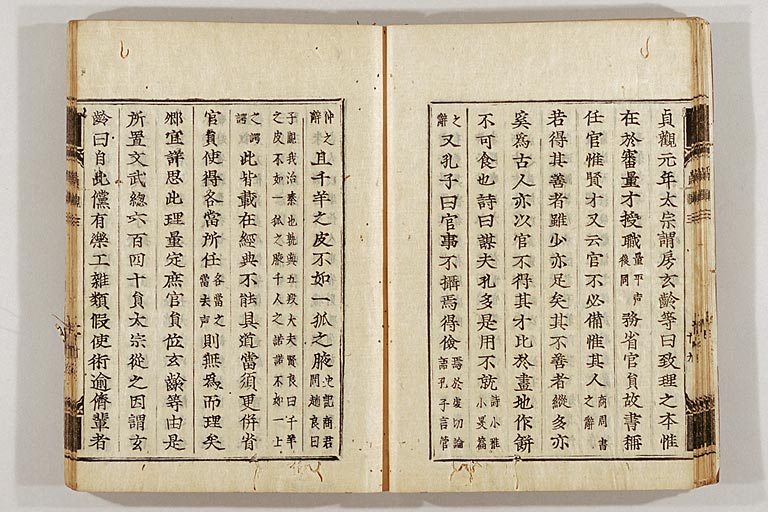 貞觀元年太宗謂房玄齡等曰致理之本惟
在於審量才授職量平声後同務省官員故書稱
任官惟賢才又云官不必備惟其人商周書之辭
若得其善者雖少亦足矣其不善者縱多亦
奚爲古人亦以官不得其才比於畫地作餅
不可食也詩曰謀夫孔多是用不就詩小雅小旻篇
之辭又孔子曰官事不攝焉得儉焉於虔切論語孔子言管
仲之辭且千羊之皮不如一狐之腋史記商君問趙良曰
子觀我治秦也孰與五羖大夫賢良曰千羊之皮不如一狐之腋千人之諾諾不如一士
之諤諤此皆載在經典不能具道當須更併省
官員使得各當所任各當之當去声則無爲而理矣
卿宜詳思此理量定庶官員位玄齡等由是
所置文武總六百四十員太宗從之因謂玄
齡曰自此儻有樂工雜類假使術逾儕輩者